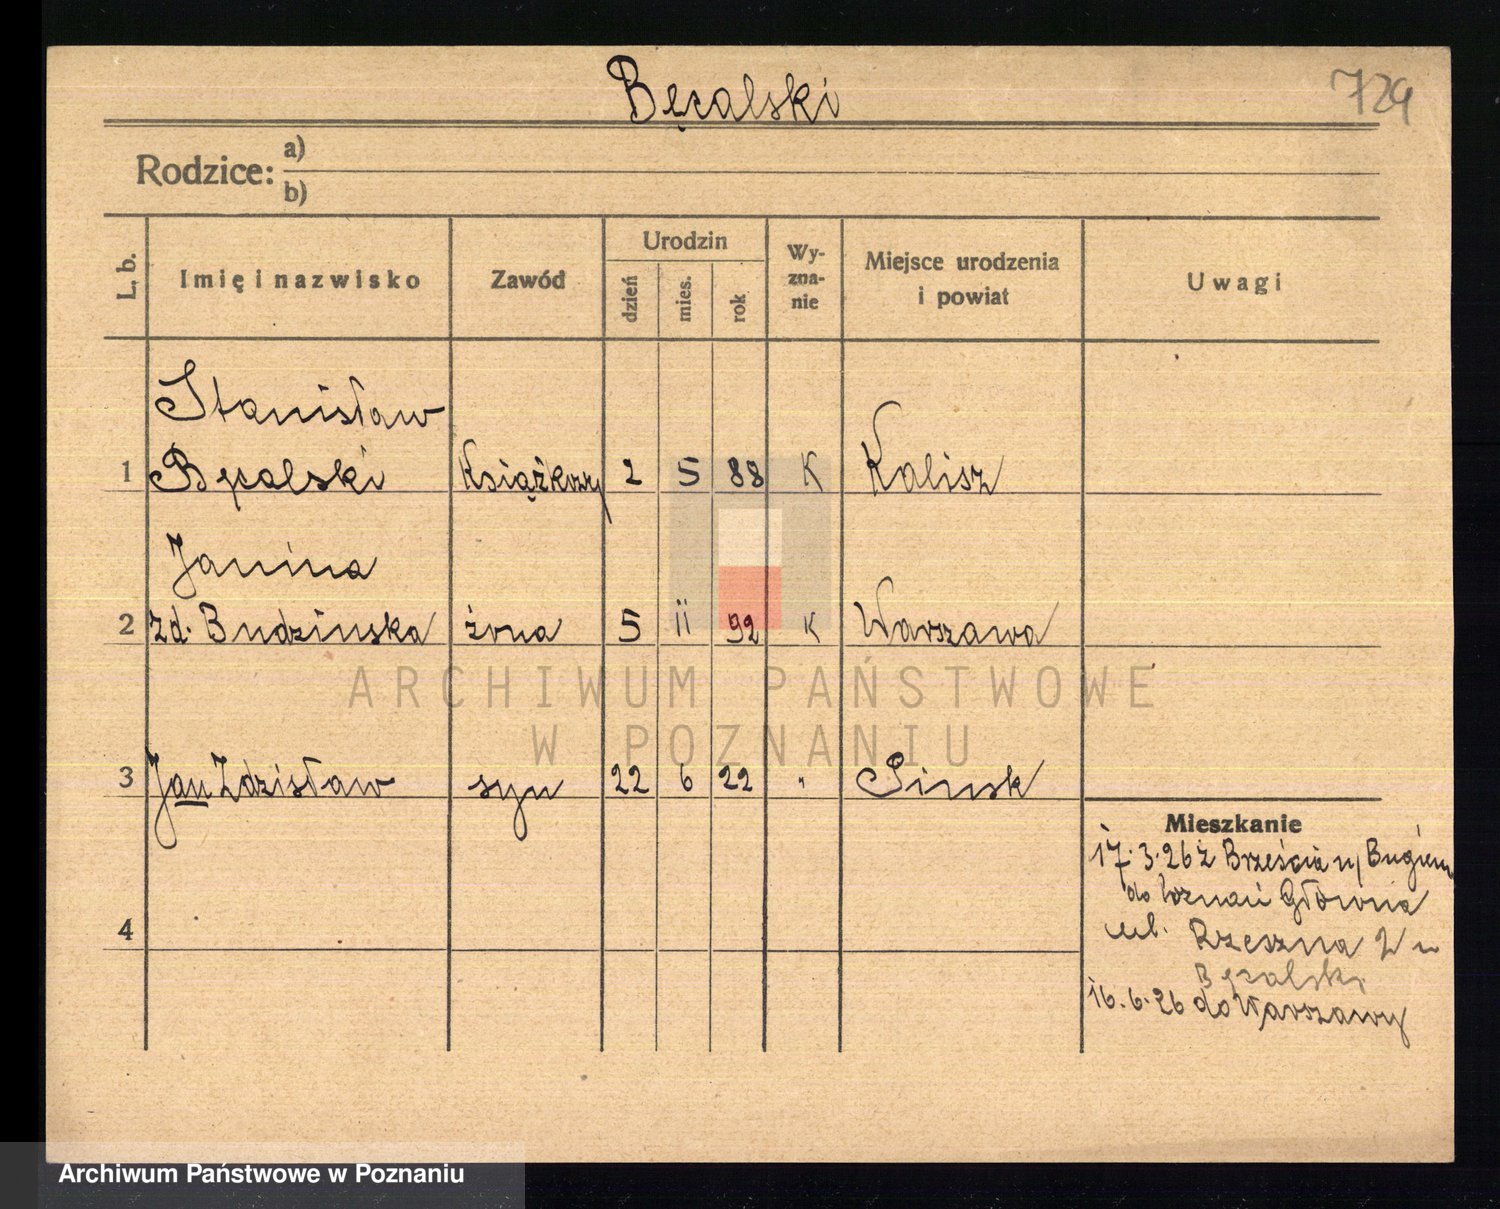 Bęcalski
729
Rodzice: a)
b)
L. b.
Imię i nazwisko
Zawód
Urodzin
dzień
mies.
rok
Wy-
zna-
nie
Miejsce urodzenia
i powiat
Uwagi
Stanisław
1 Bęcalski Książkowy 2 5 88 K Kalisz
Janina
2 zd. Budzinska żona 5 ii 92 K Warszawa
3 Jan Zdzisław syn 22 6 22 " Pinsk
4
Mieszkanie
17.3.26 z Brześcia n/ Bugiem
do Poznań Główna
ul. Rzeszna 2 u
Bęcalski
16.6.26 do Warszawy
ARCHIWUM PAŃSTWOWE
W POZNANIU
Archiwum Państwowe w Poznaniu